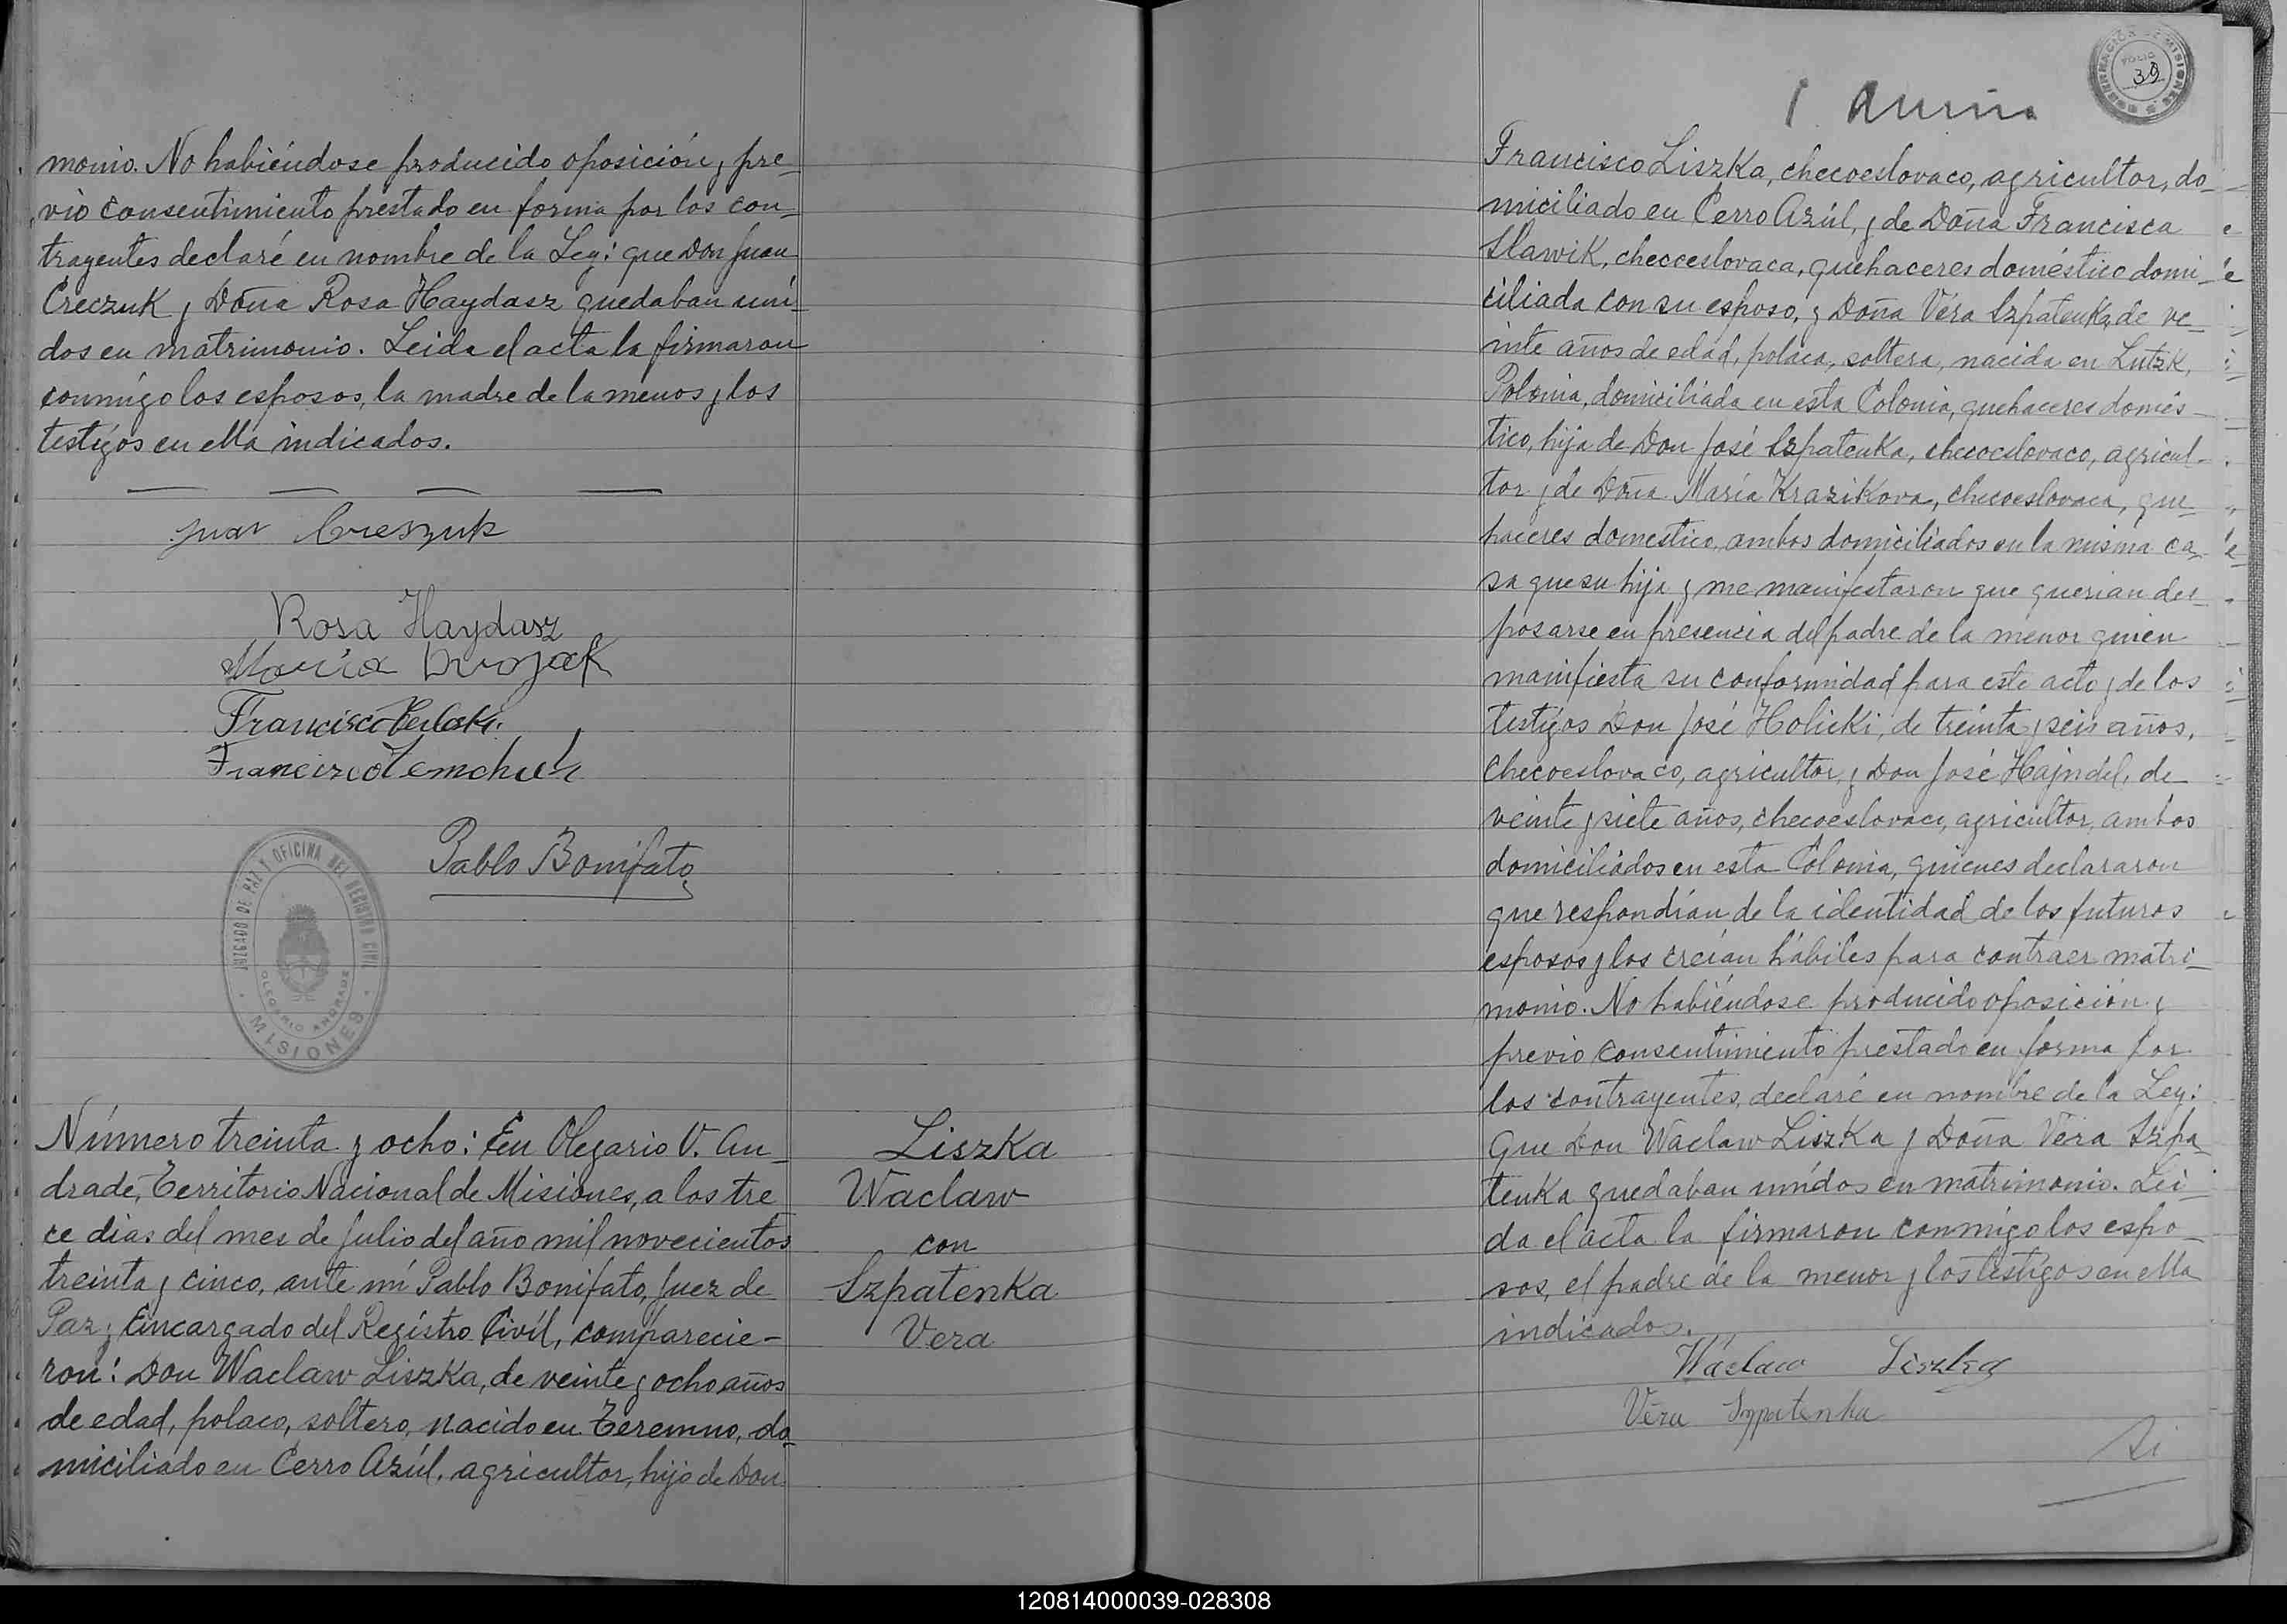 monio. No habiéndose producido oposición y pre-
vio consentimiento prestado en forma por los con-
trayentes declaré en nombre de la Ley: que Don Juan
Creczuk y Doña Rosa Haydasz quedaban uni-
dos en matrimonio. Leida el acta la firmaron
conmigo los esposos, la madre de la menos y los
testigos en ella indicados.
Juan Creszuk
Rosa Haydasz
Maria Dwojak
Francisco
Francizco
Pablo Bonifato
JUZGADO DE PAZ Y OFICINA DEL REGISTRO CIVIL
OLEGARIO ANDRADE
MISIONES
Número treinta y ocho: En Olegario V. An-
drade, Territorio Nacional de Misiones, a los tre
ce dias del mes de Julio del año mil novecientos
treinta y cinco, ante mí Pablo Bonifato, Juez de
Paz y Encargado del Registro Civíl, comparecie-
ron: Don Waclaw Liszka, de veinte y ocho años
de edad, polaco, soltero, nacido en Teremno, do-
miciliado en Cerro Azúl, agricultor, hijo de Don
Liszka
Waclaw
con
Szpatenka
Vera
39
Francisco Liszka, checoeslovaco, agricultor, do-
miciliado en Cerro Azúl, y de Doña Francisca
Slawik, checoeslovaca, quehaceres doméstico domi-
ciliada con su esposo, y Doña Véra Szpatenka, de ve-
inte años de edad, polaca, soltera, nacida en Lutzk,
Polonia, domiciliada en esta Colonia, quehaceres domés-
tico, hija de Don José Szpatenka, checoeslovaco, agricul-
tor y de Doña María Krazikova, checoeslovaca, que-
haceres domestico, ambos domiciliados en la misma ca-
sa que su hija y me manifestaron que querian des-
posarse en presencia del padre de la menor quien
manifiesta su conformidad para este acto y de los
testigos Don José Holicki, de treinta y seis años,
checoeslovaco, agricultor, y Don José Hajndel, de
veinte y siete años, checoeslovaco, agricultor, ambos
domiciliados en esta Colonia, quienes declararon
que respondían de la identidad de los futuros
esposos y los creían hábiles para contraer matri-
monio. No habiéndose producido oposición y
previo consentimiento prestado en forma por
los contrayentes, declaré en nombre de la Ley:
que Don Waclaw Liszka y Doña Véra Szpa-
tenka quedaban unidos en matrimonio. Lei-
da el acta la firmaron conmigo los espo-
sos, el padre de la menor y los testigos en ella
indicados.
Wáclaw Liszka
Věra Szpatenka
120814000039-028308